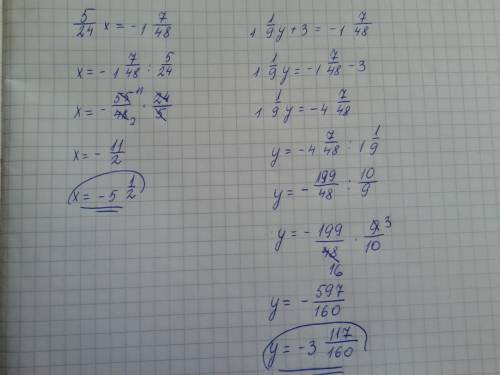 5/24 x = -1 7/48
x = -1 7/48 : 5/24
x = - 55 11/48 2 · 24/5
x = - 11/2
x = -5 1/2
1 1/9 y + 3 = -1 7/48
1 1/9 y = -1 7/48 - 3
1 1/9 y = -4 7/48
y = -4 7/48 : 1 1/9
y = - 199/48 : 10/9
y = - 199/48 16 · 9 3/10
y = - 597/160
y = -3 117/160